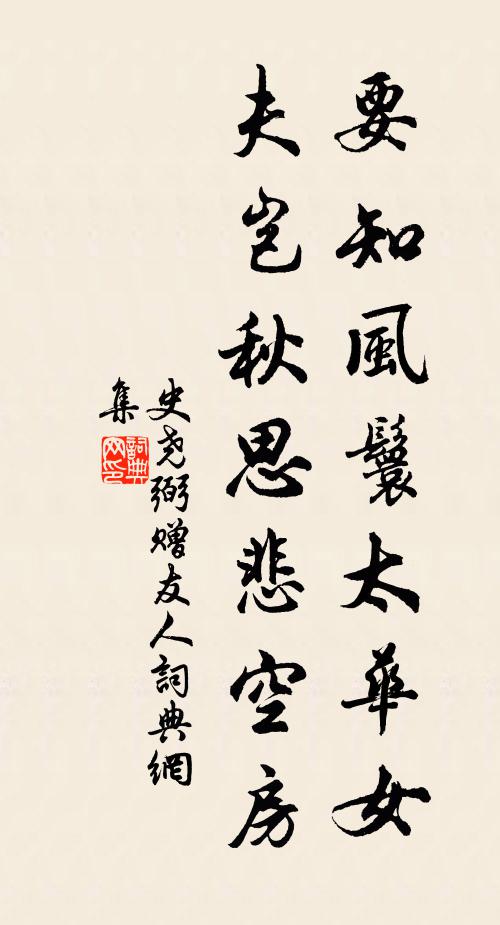 要知風鬟太華女
夫豈秋思悲空房
史堯弼贈友人詞典網
集
詞典
网印